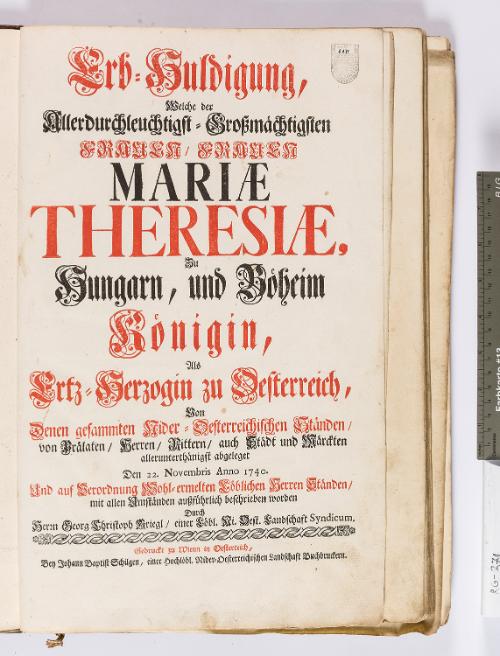 Erb-Huldigung,
Welche der
Allerdurchleuchtigst-Großmächtigsten
FRAUEN/ FRAUEN
MARIÆ
THERESIÆ,
Zu
Hungarn, und Böheim
Königin,
Als
Ertz-Herzogin zu Oesterreich,
Von
Denen gesammten Nider-Oesterreichischen Ständen/
von Prälaten/ Herren/ Rittern/ auch Städt und Märckten
allerunterthänigst abgeleget
Den 22. Novembris Anno 1740.
Und auf Verordnung Wohl-ermelten Löblichen Herren Ständen/
mit allen Umständen außführlich beschrieben worden
Durch
Herrn Georg Christoph Kriegl/ einer Löbl. Ni. Oest. Landschaft Syndicum.
Gedruckt zu Wienn in Oesterreich,
Bey Johann Baptist Schilgen, einer Hochlöbl. Nider-Oesterreichischen Landschaft Buchdruckern.
Farbkarte #13